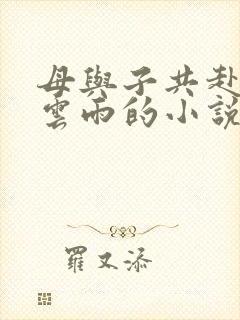 母與子共赴
雲雨的小説
羅又添